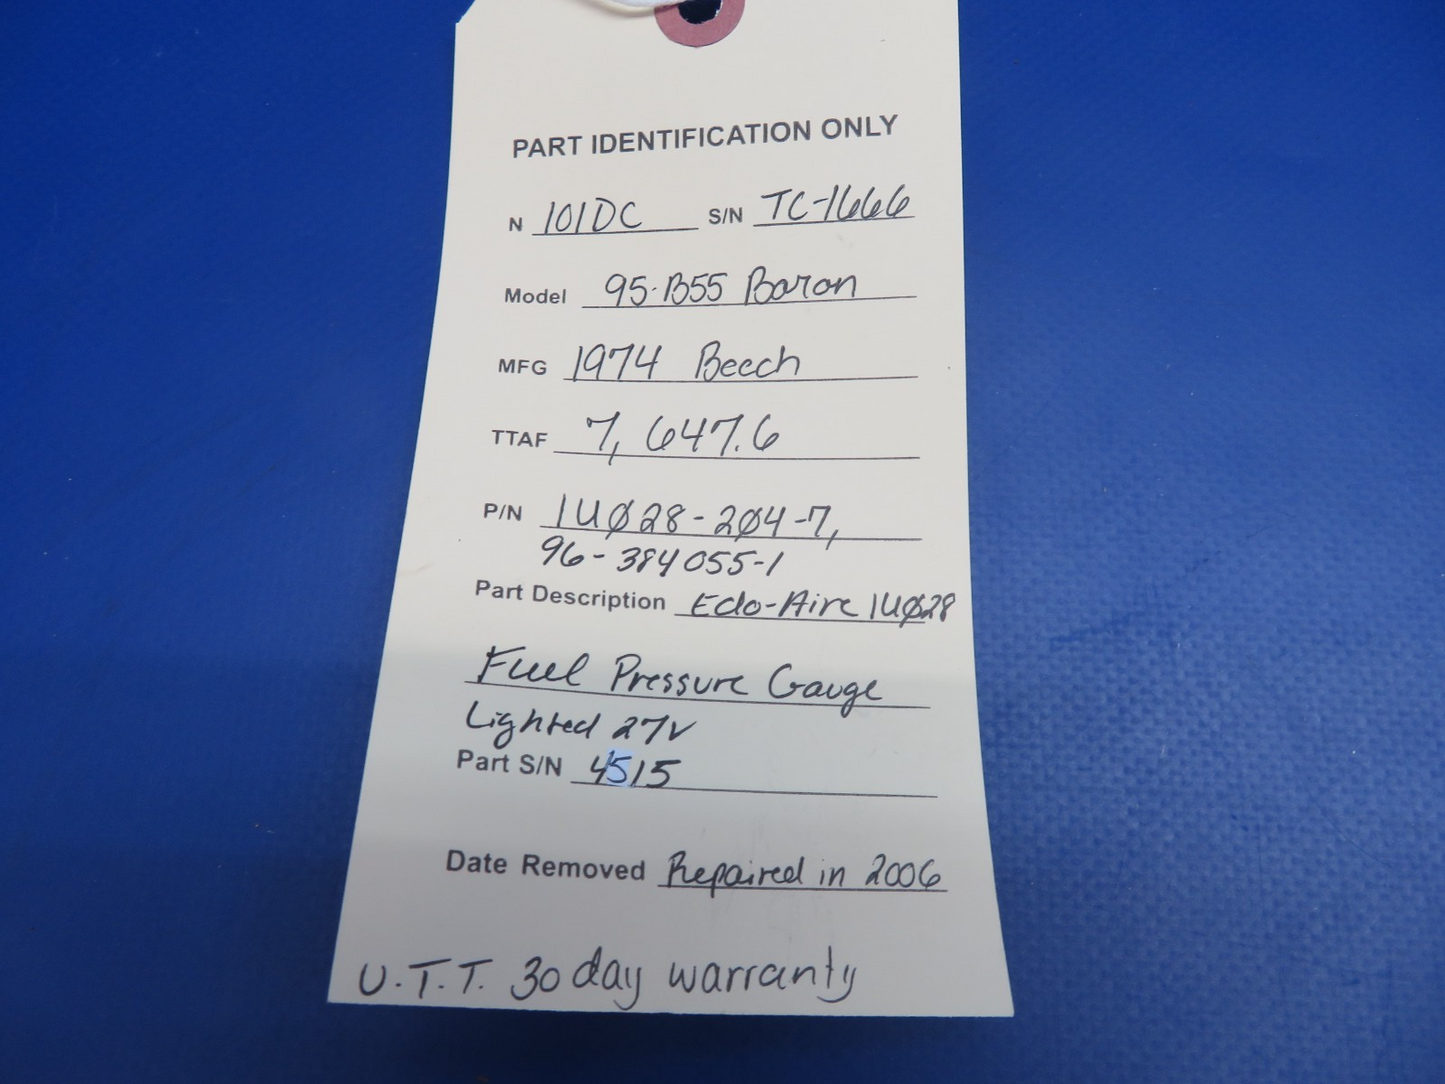 PART IDENTIFICATION ONLY
N 101DC S/N TC-1666
Model 95-B55 Baron
MFG 1974 Beech
TTAF 7,647.6
P/N 1UØ28-2Ø4-7,
96-384055-1
Part Description Edo-Aire 1UØ28
Fuel Pressure Gauge
Lighted 27V
Part S/N 4515
Date Removed Repaired in 2006
U.T.T. 30 day warranty